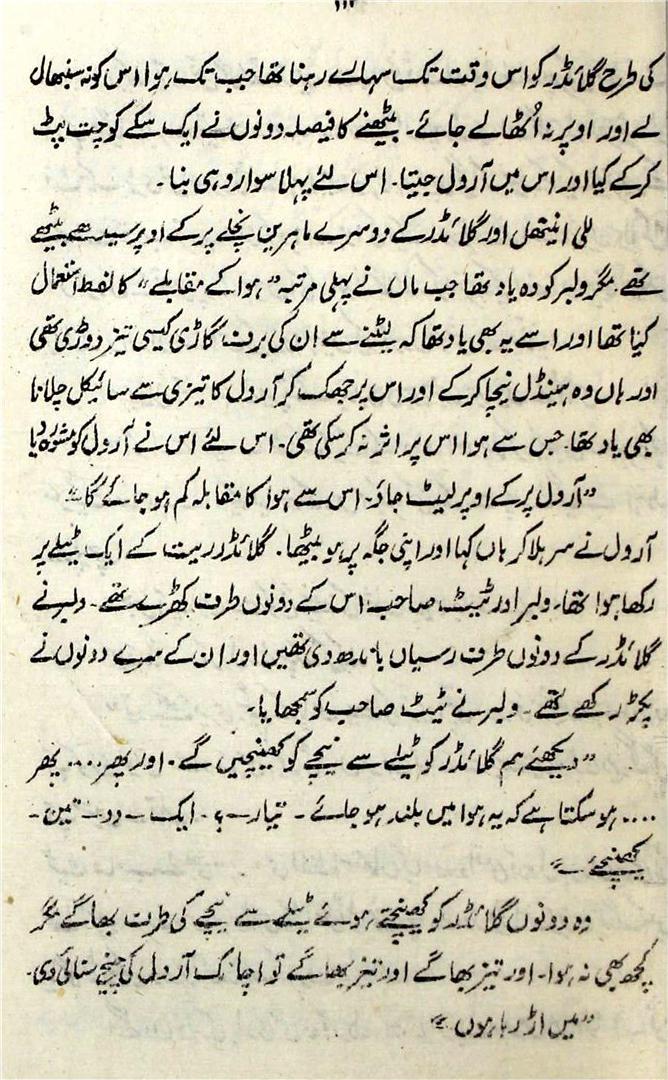 ۱۱۱
کی طرح گلائڈر کو اس وقت تک سہارے رہنا تھا جب تک ہوا اس کو نہ سنبھال
لے اور اوپر نہ اُٹھا لے جائے۔ بیٹھنے کا فیصلہ دونوں نے ایک سکے کو چت پٹ
کر کے کیا اور اس میں آرول جیتا۔ اس لئے پہلا سوار وہی بنا۔
للی انیتھل اور گلائڈر کے دوسرے ماہرین نچلے پر کے اوپر سیدھے بیٹھے
تھے۔ مگر ولبر کو وہ یاد تھا جب ماں نے پہلی مرتبہ "ہوا کے مقابلے" کا لفظ استعمال
کیا تھا اور اسے یہ بھی یاد تھا کہ لیٹنے سے ان کی برف گاڑی کیسی تیز دوڑی تھی
اور ہاں وہ ہینڈل نیچا کر کے اور اس پر جھک کر آرول کا تیزی سے سائیکل چلانا
بھی یاد تھا۔ جس سے ہوا اس پر اثر نہ کر سکی تھی۔ اس لئے اس نے آرول کو مشورہ دیا
"آرول پر کے اوپر لیٹ جاؤ۔ اس سے ہوا کا مقابلہ کم ہو جائے گا"
آرول نے سر ہلا کر ہاں کہا اور اپنی جگہ پر ہو بیٹھا۔ گلائڈر ریت کے ایک ٹیلے پر
رکھا ہوا تھا۔ ولبر اور ٹیٹ صاحب اس کے دونوں طرف کھڑے تھے۔ ولبر نے
گلائڈر کے دونوں طرف رسیاں باندھ دی تھیں اور ان کے سرے دونوں نے
پکڑ رکھے تھے۔ ولبر نے ٹیٹ صاحب کو سمجھایا۔
"دیکھئے ہم گلائڈر کو ٹیلے سے نیچے کو کھینچیں گے۔ اور پھر.... پھر
.... ہو سکتا ہے کہ یہ ہوا میں بلند ہو جائے۔ تیار ــ ؟ ۔ ایک ــ دو ــ تین۔
کھینچئے ــ"
وہ دونوں گلائڈر کو کھینچتے ہوئے ٹیلے سے نیچے کی طرف بھاگے مگر
کچھ بھی نہ ہوا۔ اور تیز بھاگے اور تیز بھاگے تو اچانک آرول کی چیخ سنائی دی۔
"میں اڑ رہا ہوں"